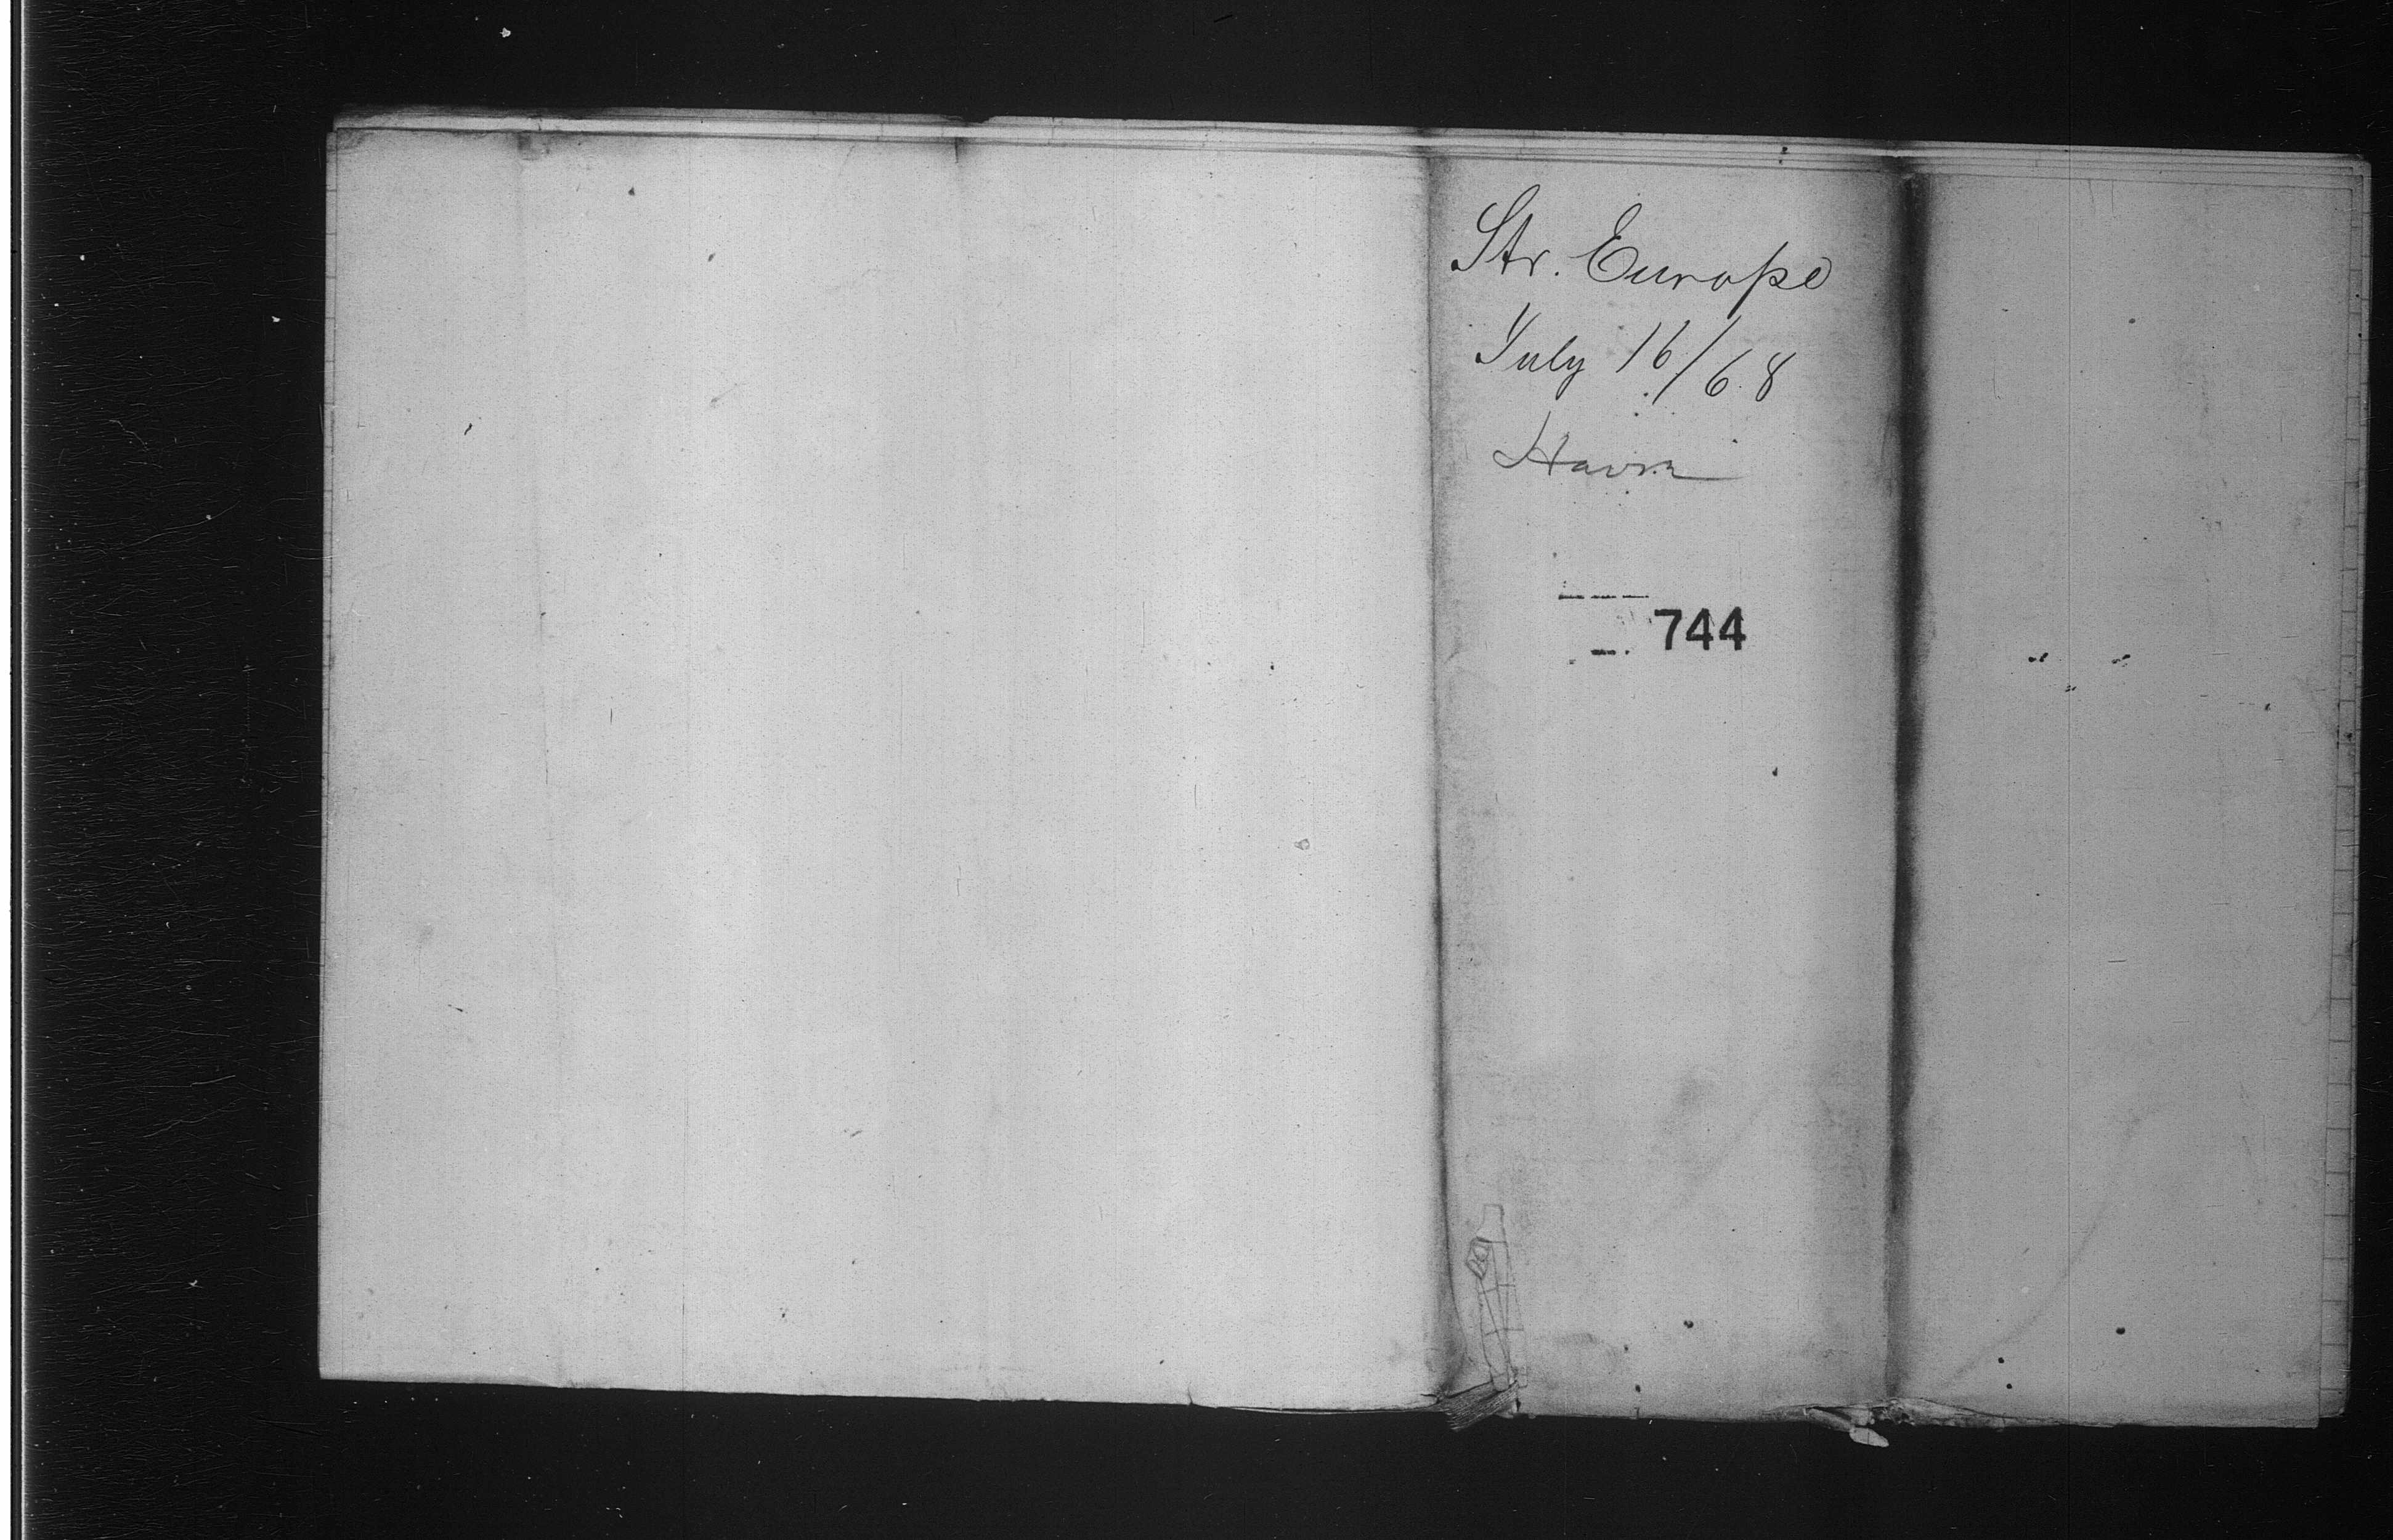 Str. Europe
July 16/68
Havre
744